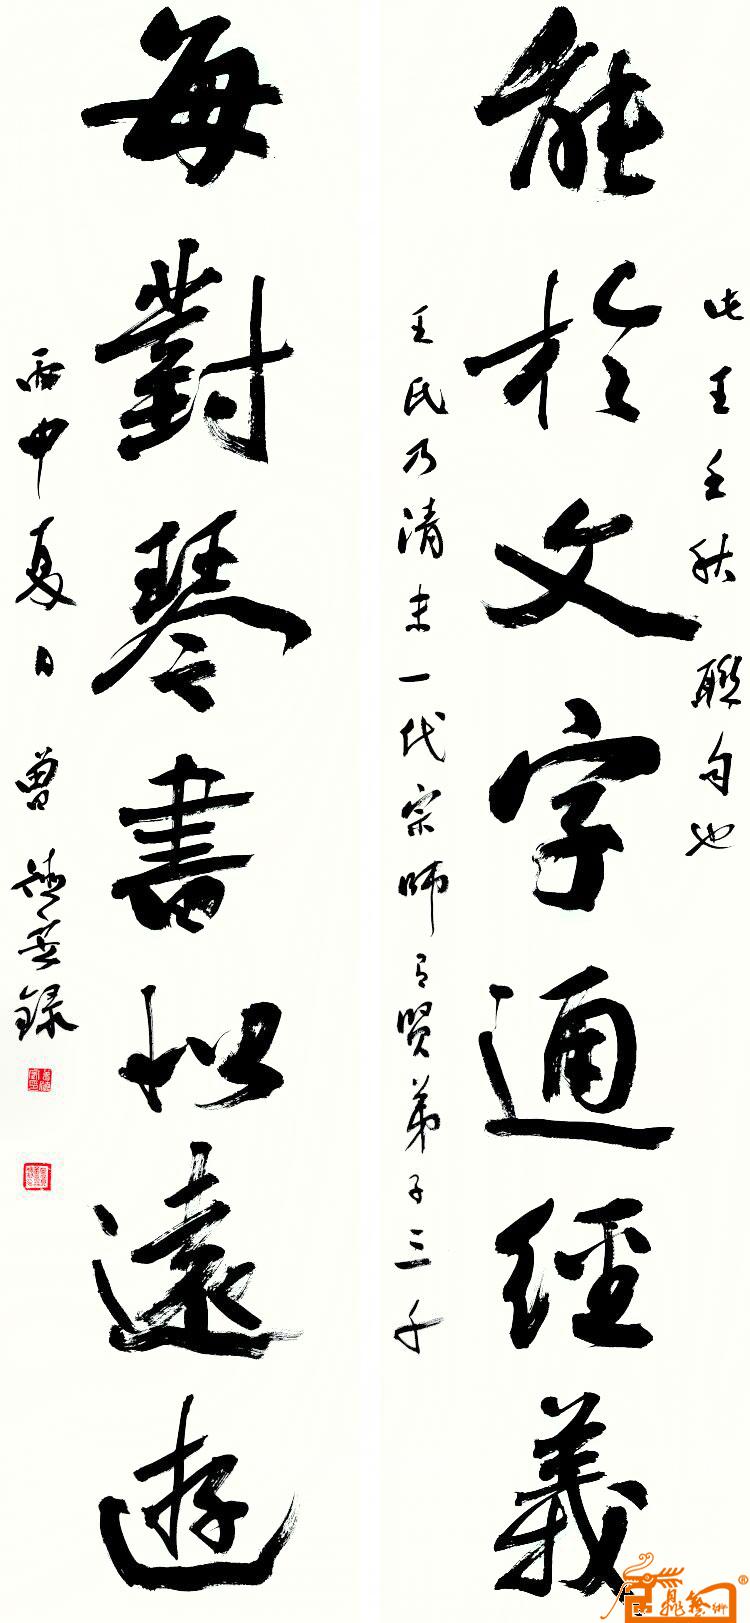 此王壬秋聯句也
能於文字通經義
王氏乃清末一代宗師有賢弟子三千
每對琴書似遠遊
丙申夏日 曾德安錄